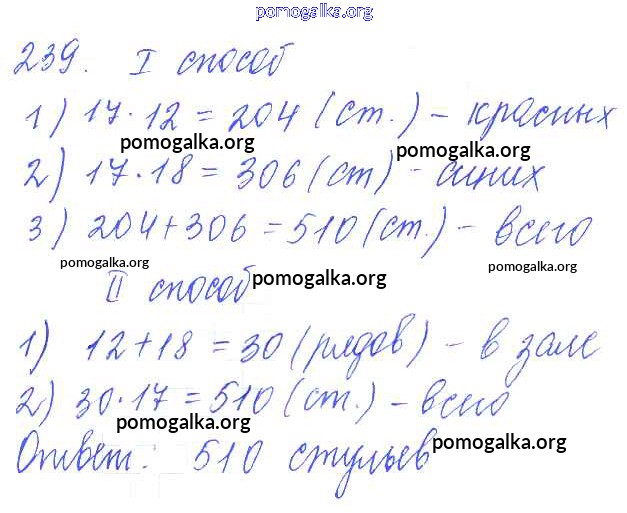 pomogalka.org
239. I способ
1) 17·12=204 (ст.) - красных
pomogalka.org pomogalka.org
2) 17·18=306 (ст) - синих
3) 204+306=510 (ст.) - всего
pomogalka.org pomogalka.org pomogalka.org
II способ
1) 12+18=30 (рядов) - в зале
2) 30·17=510 (ст.) - всего
pomogalka.org pomogalka.org
Ответ: 510 стульев